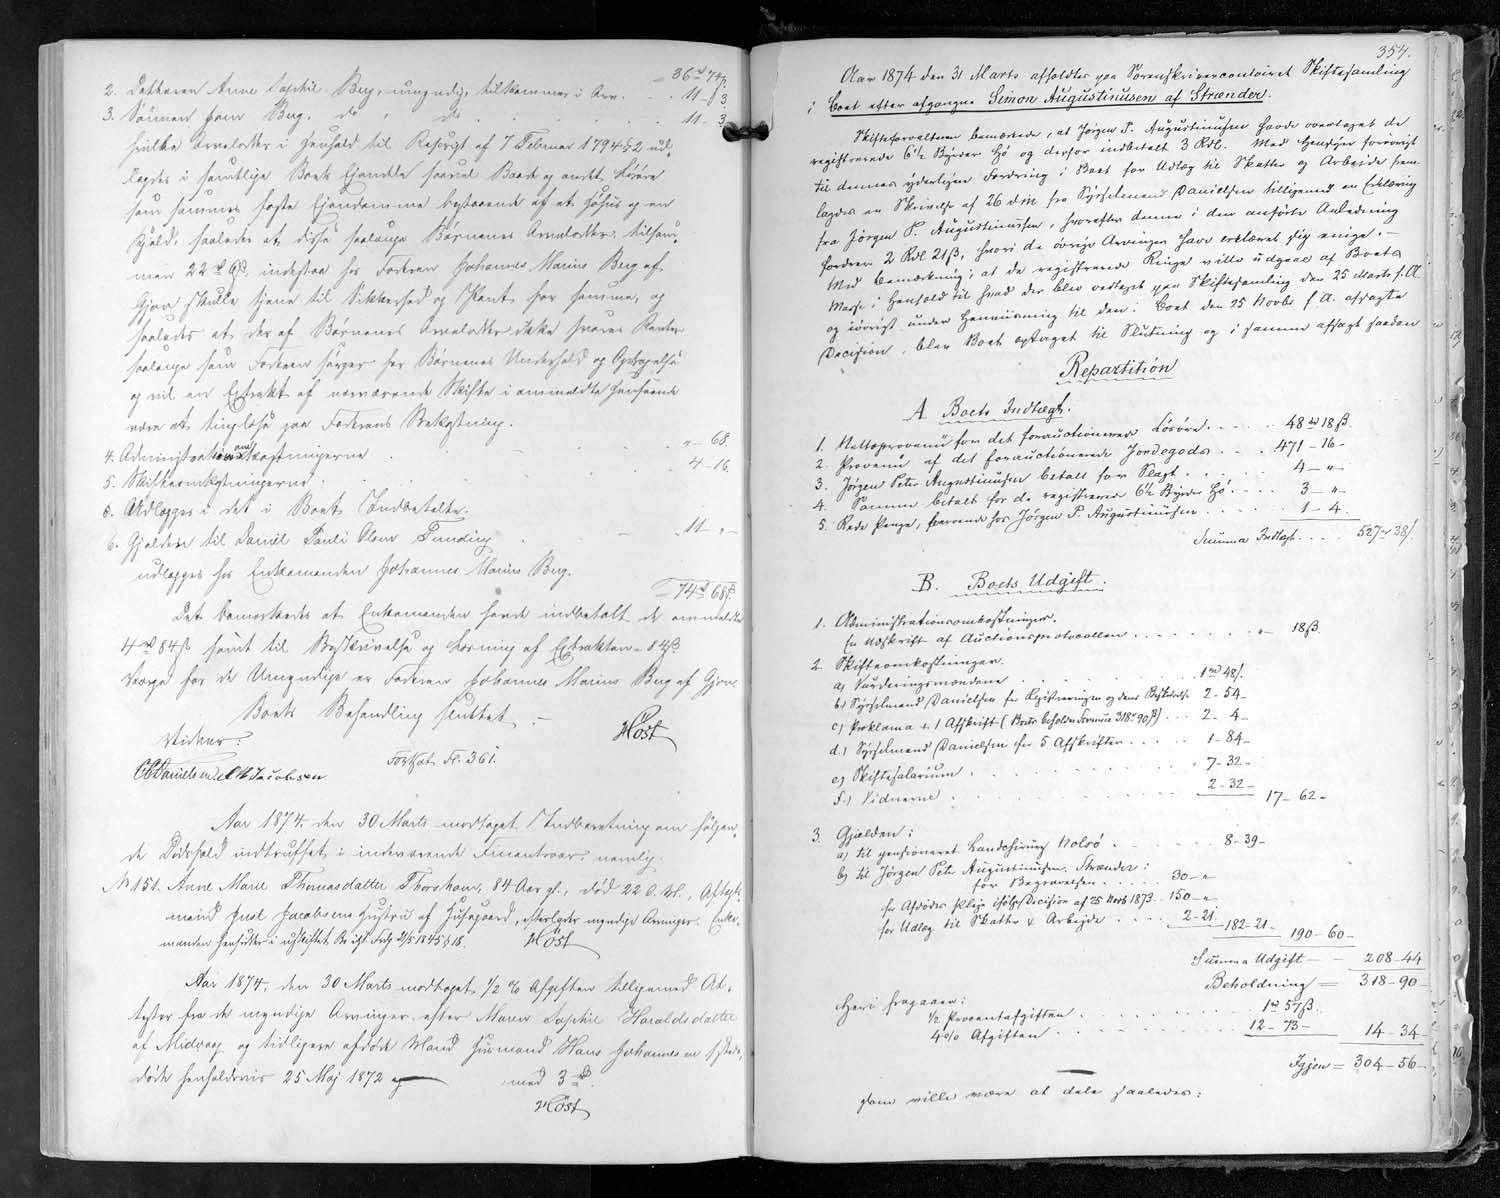 = 36 rd 74 ß.
2. Datteren Anne Sophie Berg, umyndig, tilkommer i Arv . . 11 - 3
3. Sønnen Joen Berg, do i do . . . . . . 11 - 3
hvilke Arvelodder i Henhold til Reskript af 7 Februar 1794 § 2 ud-
lægges i samtlige Boets Ejendele saavel Baade og andet Løsøre
som sammes faste Ejendomme bestaaende af et Huus og en
Hjeld, saaledes at disse saalænge Børnenes Arvelodder, tilsam-
men 22 rd 6 ß, indestaa hos Faderen Johannes Marius Berg af
Gjov skulle tjene til Sikkerhed og Pant for samme, og
saaledes at der af Børnenes Arvelodder ikke svares Renter
saalænge som Faderen sørger for Børnenes Underhold og Opdragelse
og vil en Extrakt af nærværende Skifte i anmeldte Henseende
være at tinglæse paa Faderens Bekostning.
4. Administrationsomkostningerne . . . " - 68.
5. Skifteomkostningerne . . . 4 - 16
Udlægges i det i Boet Indbetalte.
6. Gjælden til Daniel Pauli Olsen Funding . . 11 - " -
udlægges hos Enkemanden Johannes Marius Berg.
= 74 rd 68 ß.
Det bemærkedes at Enkemanden havde indbetalt de anmeldte
4 rd 84 ß samt til Beskrivelse og Læsning af Extrakten - 84 ß
Værge for de Umyndige er Faderen Johannes Marius Berg af Gjov.
Boets Behandling sluttet. -
Høst
Vidner:
Fortsat Fl. 361.
Danielsen Jacobsen
Aar 1874. den 30 Marts modtaget Indberetning om følgen-
de Dødsfald indtruffet i indeværende Finantsaar, nemlig.
No 151. Anne Marie Thomasdatter Thorshavn, 84 Aar gl., død 22 d. M., Aftægts-
mand Jacobsens Hustru af Husegaard, efterlader myndige Arvinger. Enke-
manden hensidder i uskiftet Bo ifl Frdg 21/5 1845 § 18. Høst
Aar 1874. den 30 Marts modtaget 1/2 % Afgiften tilligemed At-
tester fra de myndige Arvinger efter Maren Sophie Haraldsdatter
af Midvaag og tidligere afdøde Mand Huusmand Hans Johannesen
døde henholdsvis 25 Maj 1872 og — med 3 rd.
Høst
354.
Aar 1874 den 31 Marts afholdtes paa Sorenskrivercontoiret Skiftesamling
i Boet efter afgangne Simon Augustinussen af Strænder.
Skifteforvalteren bemærkede, at Jørgen P. Augustinussen havde overtaget de
registrerede 6 1/2 Byrder Hø og derfor indbetalt 3 Rdl. Med Hensyn forøvrigt
til dennes yderligere Fordring i Boet for Udlæg til Skatter og Arbejde frem-
lagdes en Skrivelse af 26 dM fra Sysselmand Danielsen tilligemed en Erklæring
fra Jørgen P. Augustinussen, hvorefter denne i den anførte Anledning
fordrer 2 Rdl 21 ß, hvori de øvrige Arvinger have erklæret sig enige. -
Med Bemærkning, at de registrerede Ringe ville udgaae af Boets
Masse i Henhold til hvad der blev vedtaget paa Skiftesamling den 25 Marts f. A.
og iøvrigt under Henviisning til den i Boet den 25 Novbr f. A. afsagte
Decision, blev Boet optaget til Slutning og i samme afsagt saadan
Repartition
A Boets Indtægt.
1. Nettoprovenu for det forauctionerede Løsøre . . . . 48 rd 18 ß.
2. Provenu af det forauctionerede Jordegods . . . . 471 - 16 -
3. Jørgen Peter Augustinussen betalt for Slagt . . . . . 4 - " -
4. Samme betalt for de registrerede 6 1/2 Byrder Hø . . . . 3 - " -
5. Rede Penge, beroende hos Jørgen P. Augustinussen . . . . . 1 - 4.
Summa Indtægt . . . . 527 rd 38 ß.
B. Boets Udgift.
1. Administrationsomkostninger.
En Udskrift af Auctionsprotocollen . . . . . . . " - 18 ß.
2. Skifteomkostninger.
a) Vurderingsmændene . . . . . . . . . 1 rd 48 ß.
b) Sysselmand Danielsen for Registreringen og dens Beskrivelse 2 - 54 -
c) Proklama + 1 Afskrift (Boets beholdne Formue 318 rd 90 ß) . . . 2 - 4 -
d) Sysselmand Danielsen for 5 Afskrifter . . . . . 1 - 84 -
e) Skiftesalarium . . . . . . . . . . . 7 - 32 -
f.) Vidnerne . . . . . . . . . . . . 2 - 32 -
17 - 62 -
3. Gjælden:
a) til pensioneret Landchirurg Nolsø . . . . . . 8 - 39 -
b) til Jørgen Peter Augustinussen, Strænder:
for Begravelsen . . . . . 30 - " -
for Afdødes Pleje ifølge Decision af 25 Novb. 1873. 150 - " -
for Udlæg til Skatter & Arbejde . . . . 2 - 21
182 - 21 -
190 - 60 -
Summa Udgift — 208 - 44
Beholdning = 318 - 90 -
Heri fragaaer:
1/2 Procentafgiften . . . . . . . . . 1 rd 57 ß.
4 % Afgiften . . . . . . . . . . 12 - 73 -
14 - 34 -
Igjen = 304 - 56 -
som ville være at dele saaledes: